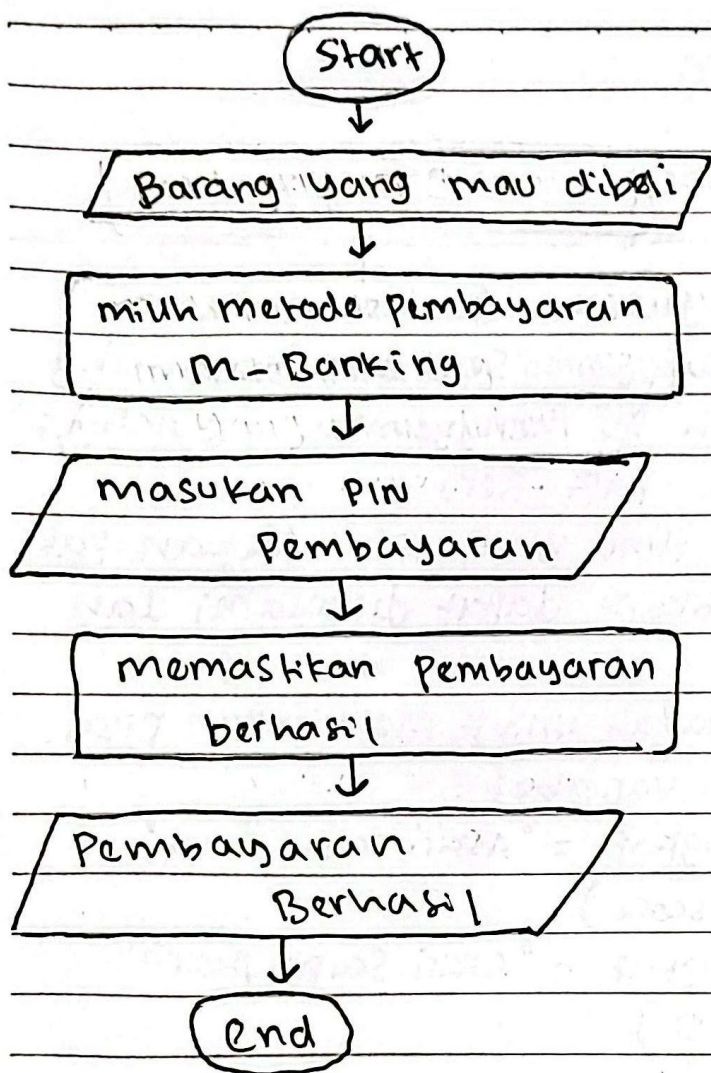 Start
Barang yang mau dibeli
milih metode Pembayaran
M-Banking
masukan PIN
Pembayaran
memastikan Pembayaran
berhasil
Pembayaran
Berhasil
end